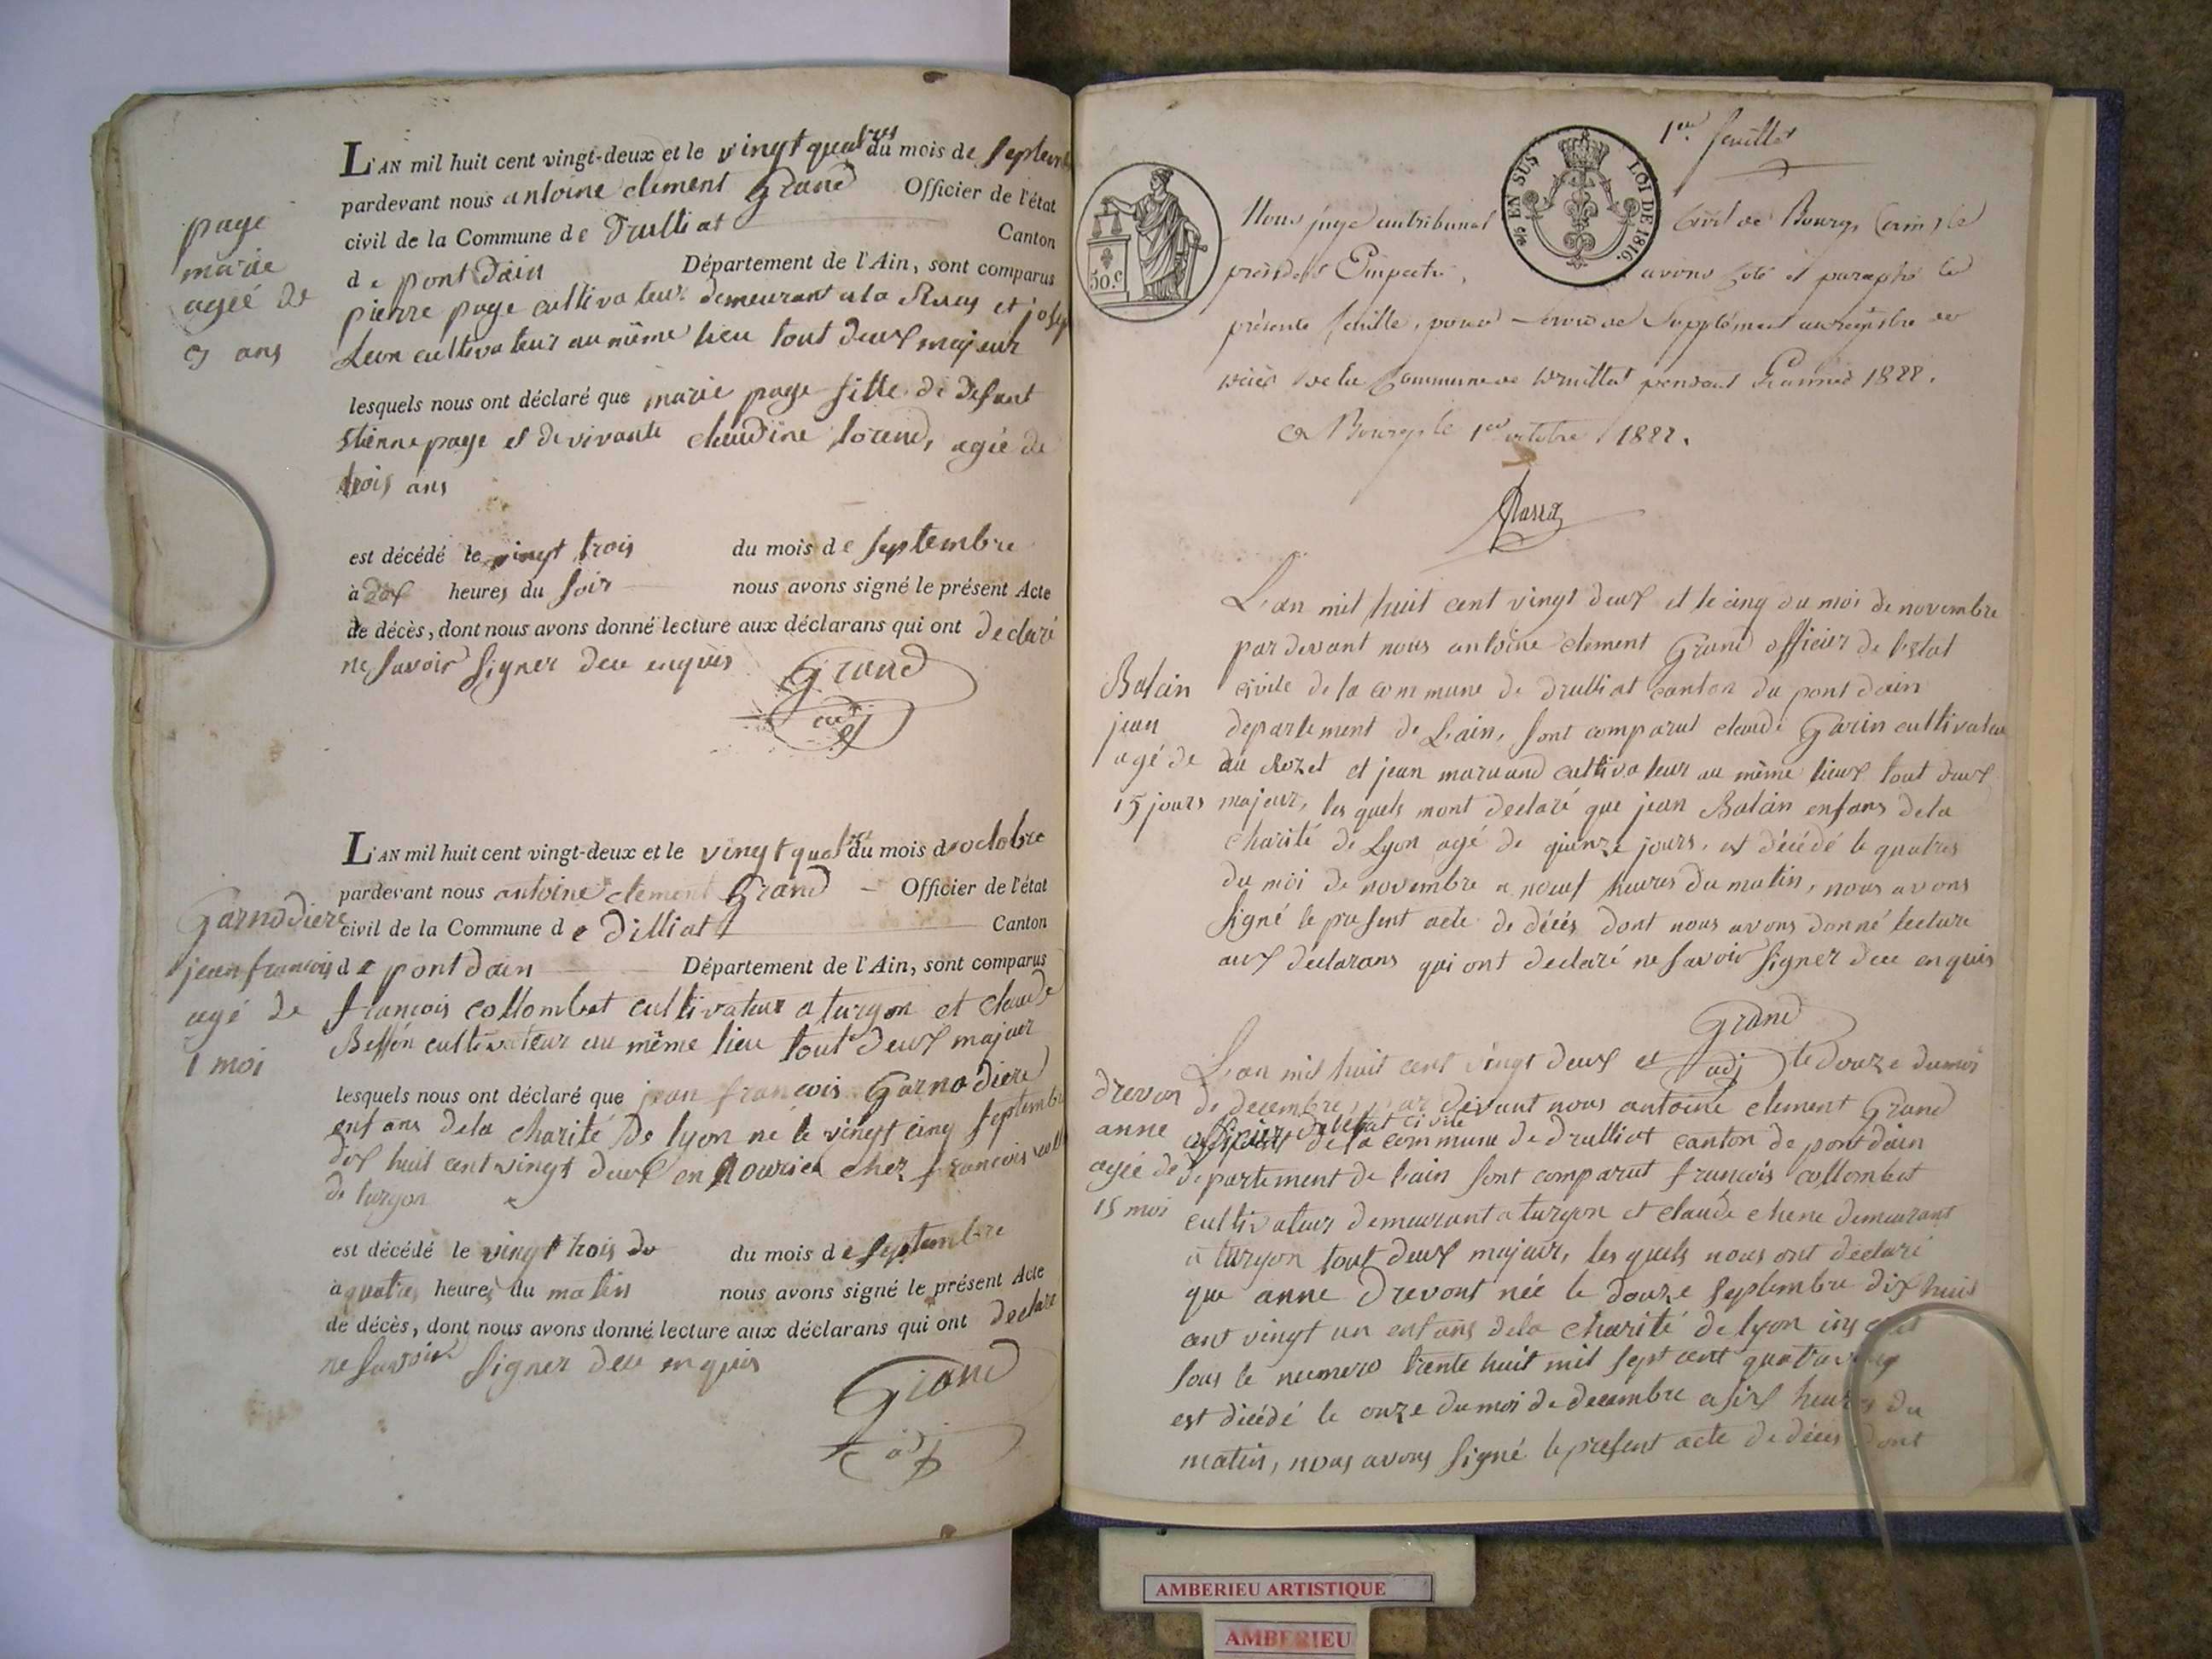 page
marie
agéé de
3 ans
L'AN mil huit cent vingt-deux et le vingt quatres du mois de septembre
pardevant nous antoine clement Grand Officier de l'état
civil de la Commune de Drulliat Canton
de pont Dain Département de l'Ain, sont comparus
pierre page cultivateur demeurant a la Ruaz et joseph
Leon cultivateur au même lieu tout deux majeur
lesquels nous ont déclaré que marie page fille de defunt
Etienne page et de vivante claudine agée de
trois ans
est décédé le vingt trois du mois de septembre
à dix heures du soir nous avons signé le présent Acte
de décès, dont nous avons donné lecture aux déclarans qui ont declaré
ne savoir signer deu enquis Grand
adj
Garnodiere
jean francois
agé de
1 moi
L'AN mil huit cent vingt-deux et le vingt quatres du mois d'octobre
pardevant nous antoine clement Grand Officier de l'état
civil de la Commune de Dilliat Canton
de pont dain Département de l'Ain, sont comparus
françois collombet cultivateur a turgon et claude
cultivateur au même lieu tout deux majeur
lesquels nous ont déclaré que jean francois Garnodiere
enfans de la charité de lyon né le vingt cinq septembre
dix huit cent vingt deux en chez francois
de turgon
est décédé le vingt trois du du mois de septembre
à quatres heures du matin nous avons signé le présent Acte
de décès, dont nous avons donné lecture aux déclarans qui ont declare
ne savoir signer deu enquis
Grand
adj
1er feuillet
50.c
EN SUS LOI DE 1816.
Nous juge au tribunal civil de Bourg, (ain) le
président Empeché, avons coté et paraphé la
présente feuille, pour servir de Supplément au registre de
décès de la Commune de Druillat pendant l'année 1822.
à Bourg le 1er octobre 1822.
L'an mil huit cent vingt deux et le cinq du moi de novembre
par devant nous antoine clement Grand officier de l'etat
civile de la commune de drulliat canton du pont dain
departement de L'ain, sont comparut claude Garin cultivateur
du Rozet et jean maruand cultivateur au même lieux tout deux
majeur, les quels mont declaré que jean Balain enfans de la
charité de Lyon agé de quinze jours, est décédé le quatres
du moi de novembre a neuf heures du matin, nous avons
signé le present acte de décés dont nous avons donné lecture
aux declarans qui ont declaré ne savoir signer deu enquis
Balain
jean
agé de
15 jours
Grand
adj
drevon
anne
agée de
15 moi
L'an mil huit cent vingt deux et le douze du moi
de decembre, par devant nous antoine clement Grand
officier de l'etat civile de la commune de drulliat canton de pont dain
departement de l'ain sont comparut francois collombet
cultivateur demeurant a turgon et claude chene demeurant
a turgon tout deux majeur, les quels nous ont declaré
que anne Drevont née le douze septembre dix huis
cent vingt un enfans de la charité de lyon inscrit
sous le numero trente huit mil sept cent quatrevingt
est décédé le onze du moi de decembre a six heures du
matin, nous avons signé le present acte de décés dont
AMBERIEU ARTISTIQUE
AMBERIEU